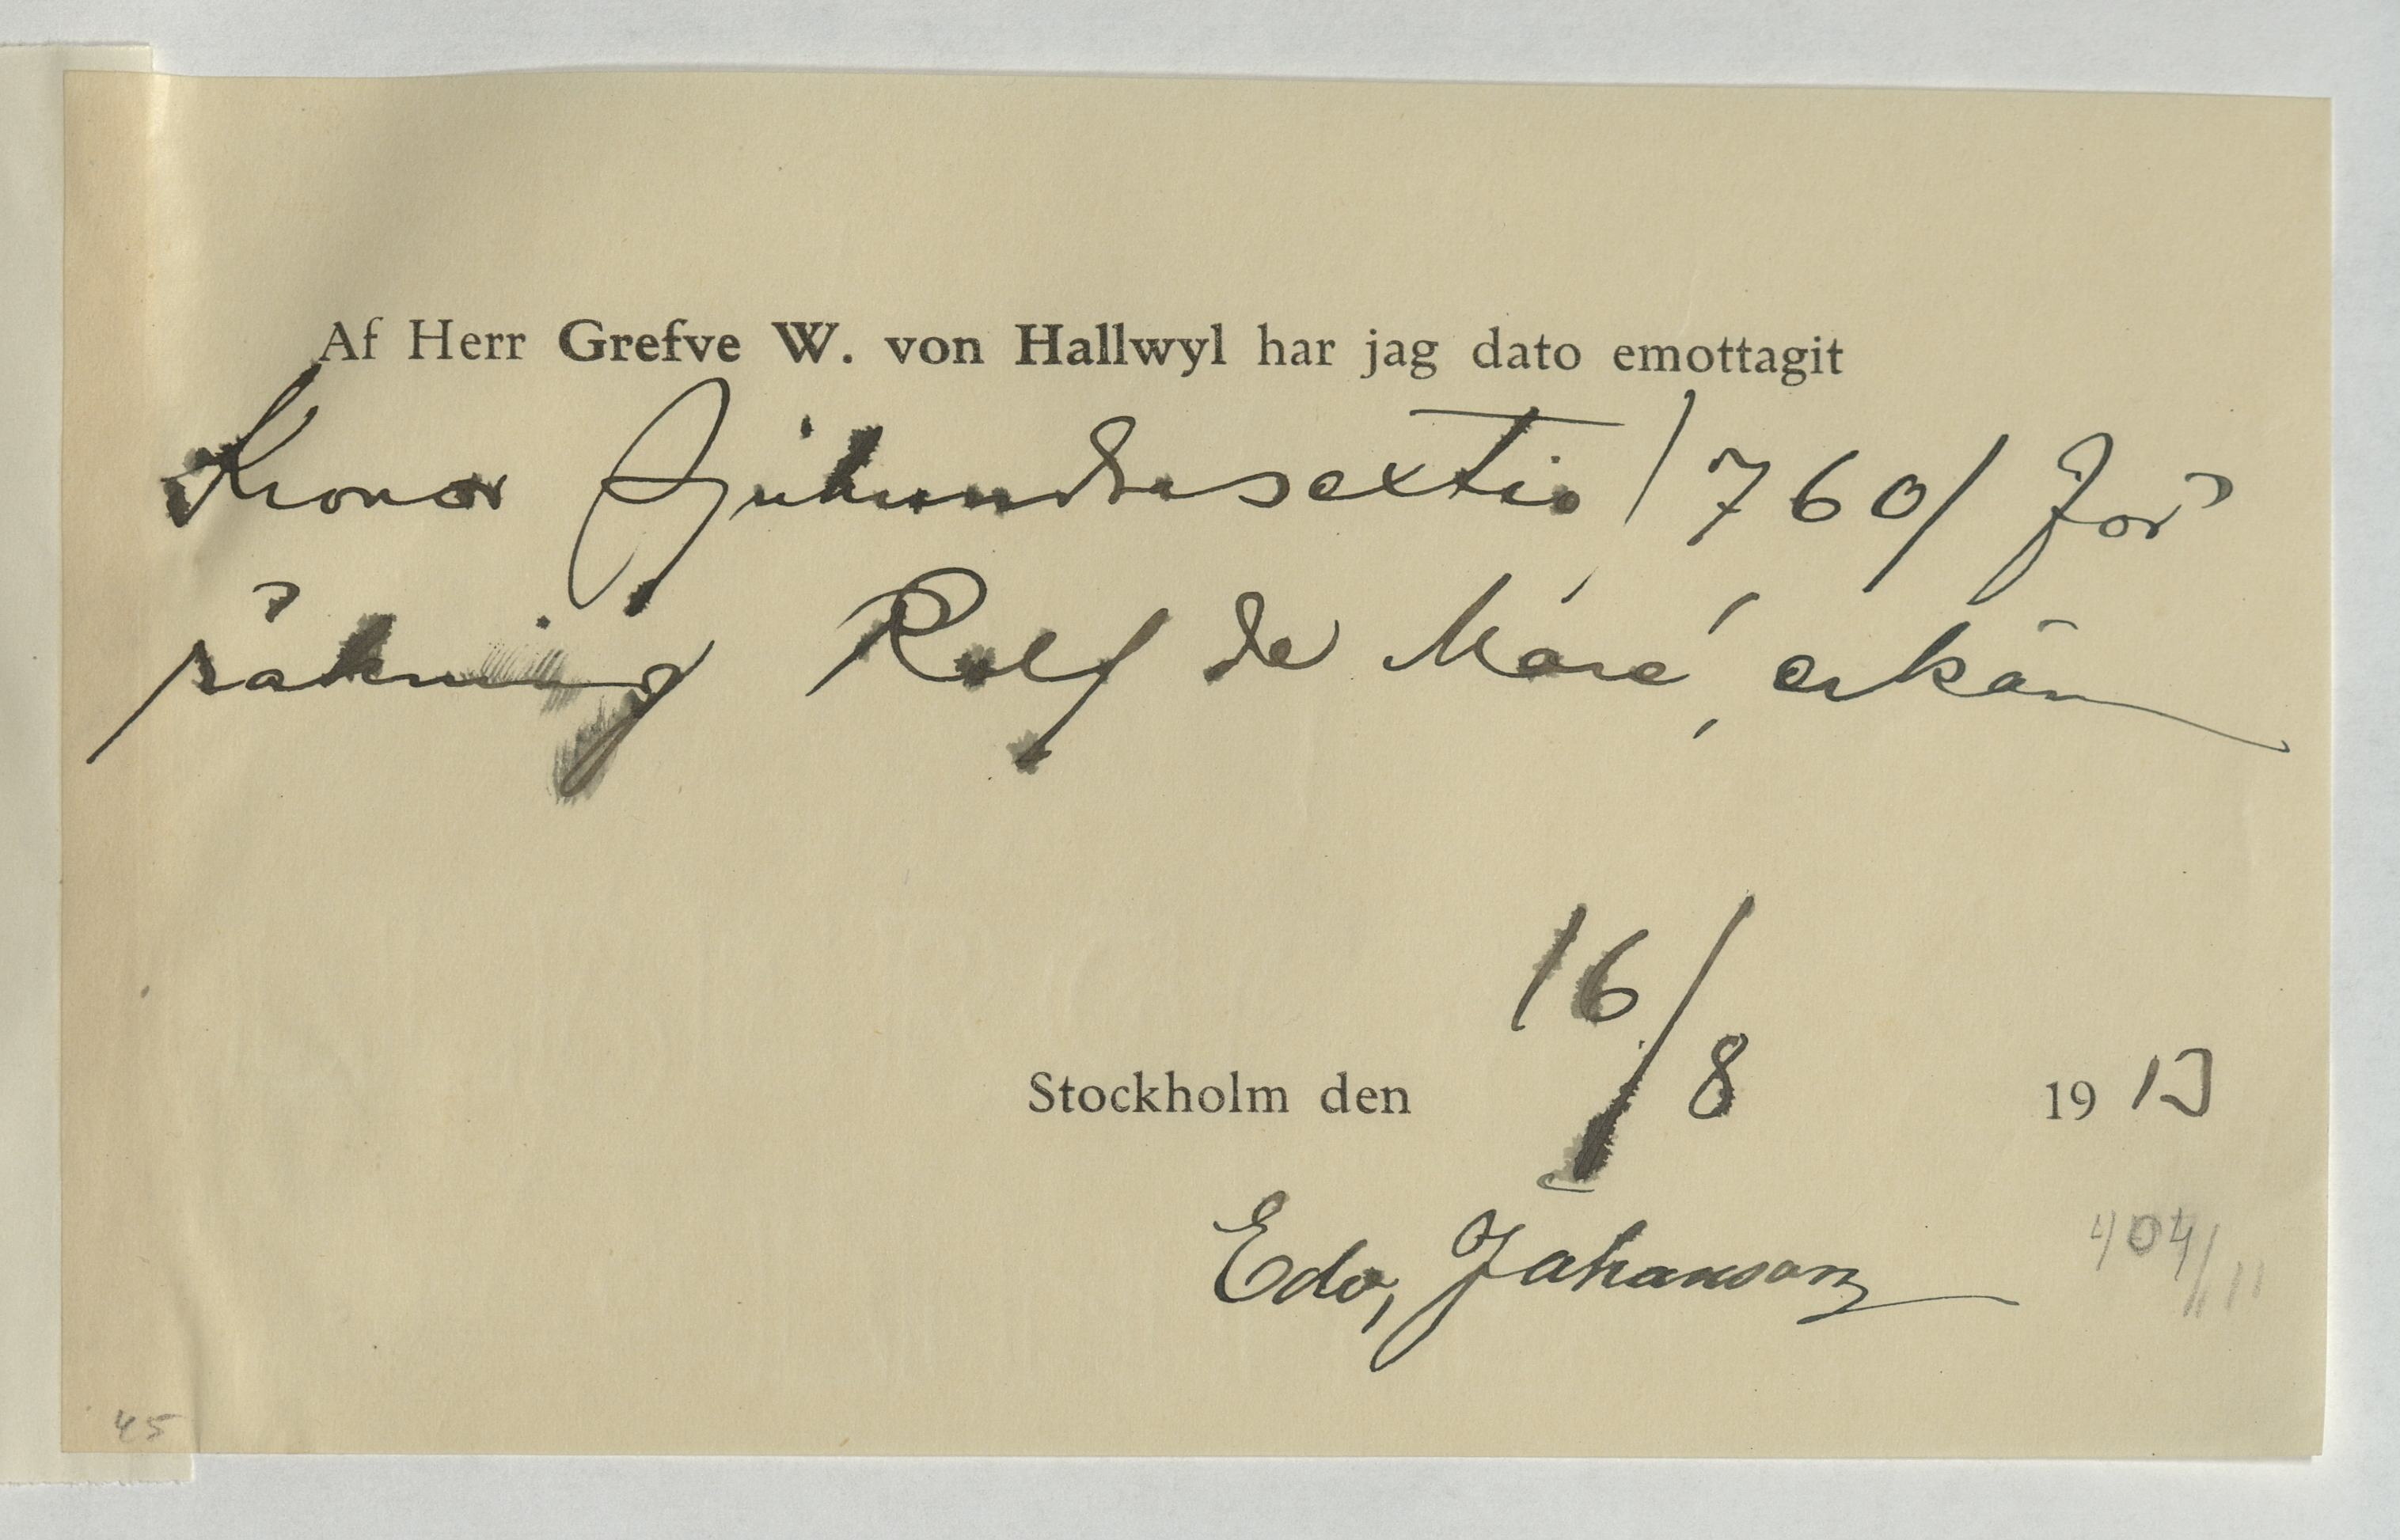 Af Herr Grefve W. von Hallwyl har jag dato emottagit
Kronor Sjuhundrasextio /760/ för
räkning Rolf de Maré, erkän
16/8
Stockholm den 1913
Edv, Johanson
404/11
45